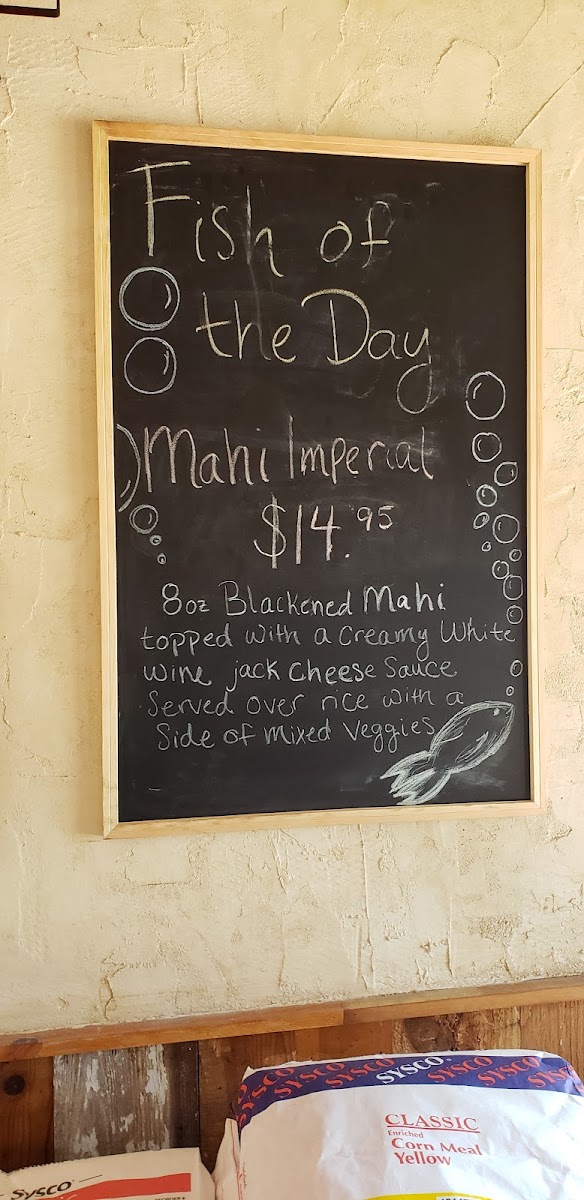 Fish of
the Day
Mahi Imperial
$14.95
8oz Blackened Mahi
topped with a Creamy White
wine jack Cheese Sauce
Served over rice with a
Side of Mixed Veggies
SYSCO SYSCO SYSCO SYSCO SYSCO SYSCO
CLASSIC
Enriched
Corn Meal
Yellow
Sysco